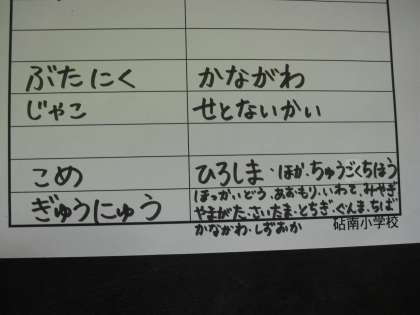 ぶたにく かながわ
じゃこ せとないかい
こめ ひろしま・ほか、ちゅうごくちほう
ぎゅうにゅう ほっかいどう、あおもり、いわて、みやぎ
やまがた・さいたま・とちぎ・ぐんま、ちば
かながわ・しずおか
砧南小学校